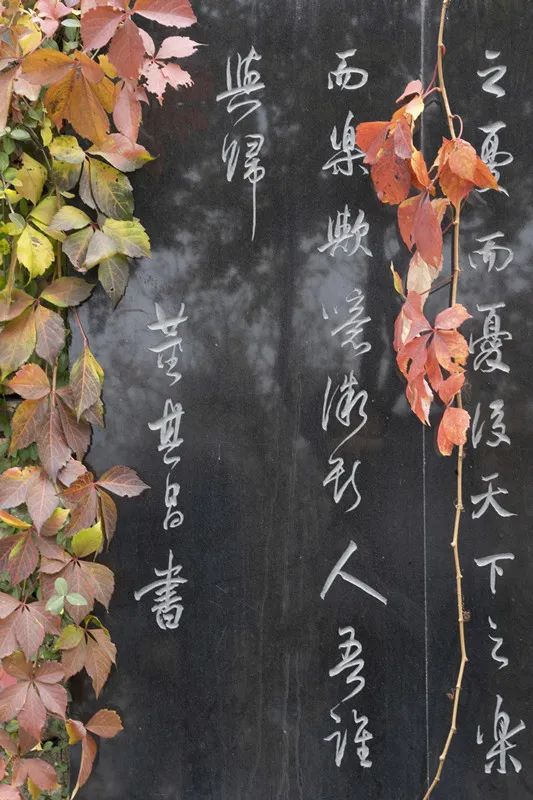 之憂而憂後天下之樂
而樂歟噫微斯人吾誰
與歸
董其昌書